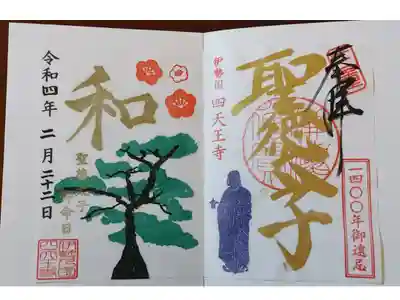 奉拝
聖徳太子
伊勢国 四天王寺
一四〇〇年御遠忌
和
聖徳太子
命日
令和四年 二月二十二日